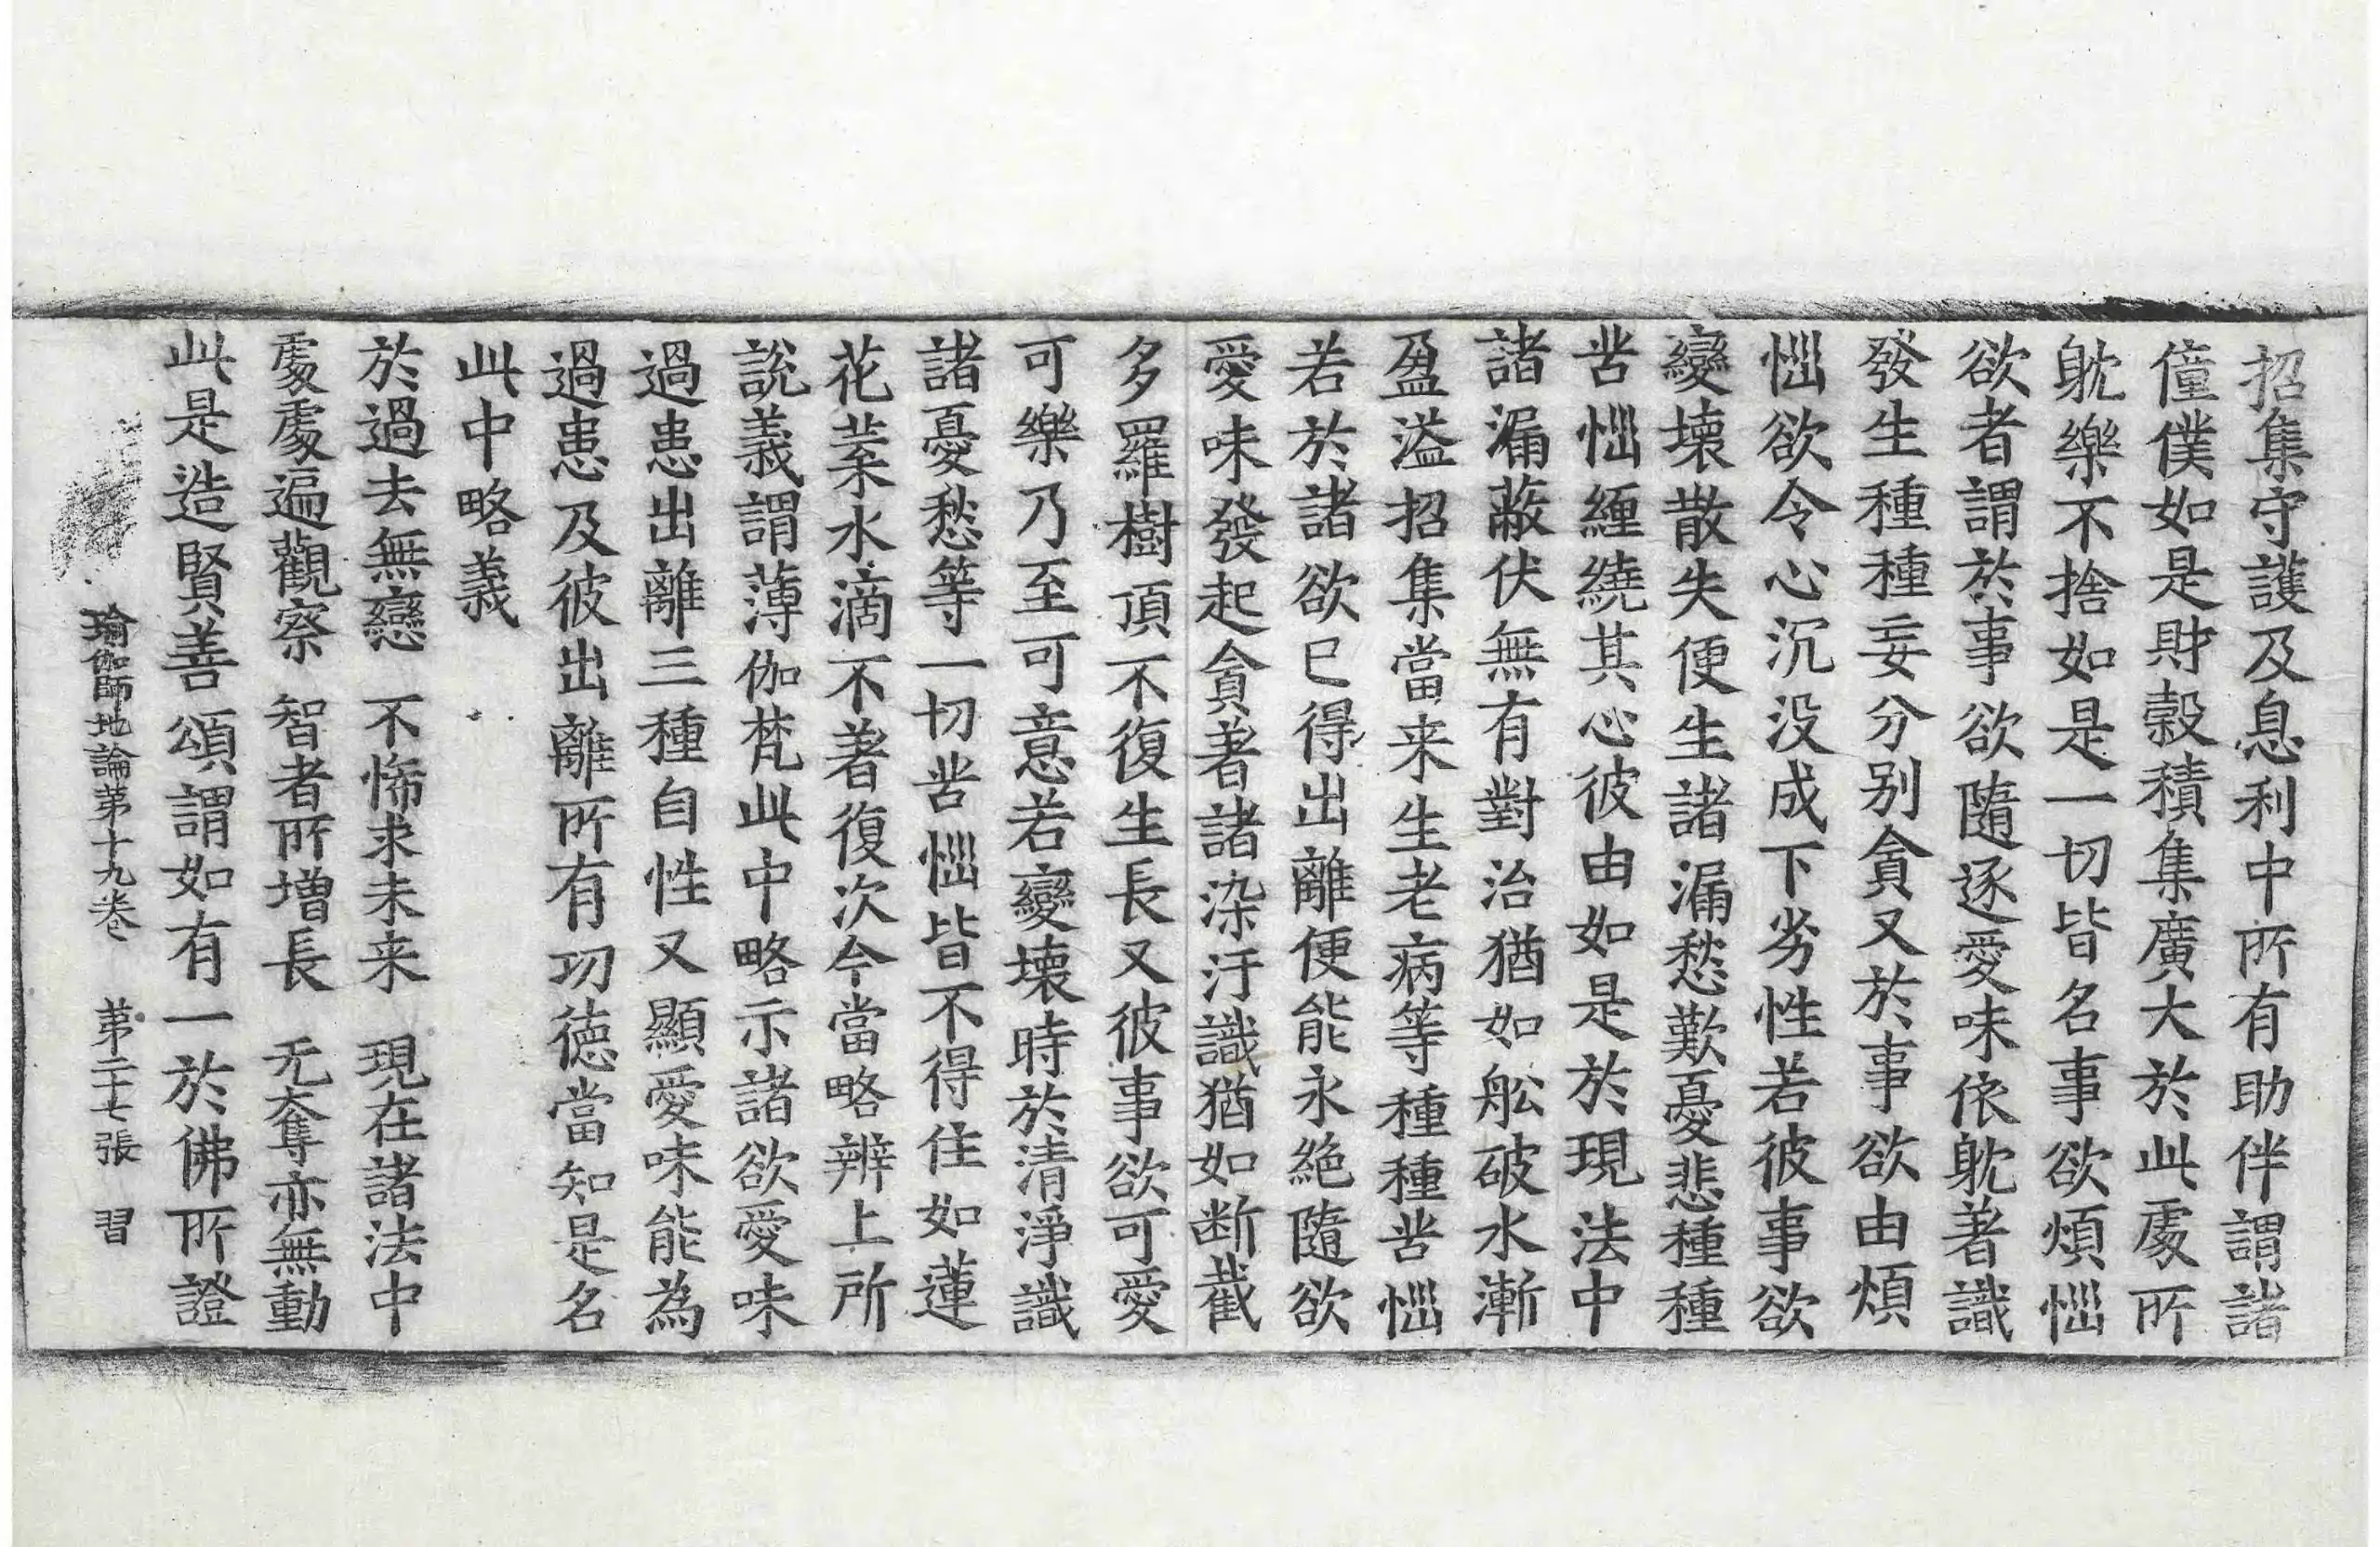 招集守護及息利中所有助伴謂諸
僮僕如是財穀積集廣大於此䖏所
躭樂不捨如是一切皆名事欲煩惱
欲者謂於事欲隨逐愛味依躭著識
發生種種妄分别貪又於事欲由煩
惱欲令心沉没成下劣性若彼事欲
變壞散失便生諸漏愁歎憂悲種種
苦惱纏繞其心彼由如是於現法中
諸漏蔽伏無有對治猶如舩破水漸
盈溢招集當来生老病等種種苦惱
若於諸欲已得出離便能永絕隨欲
愛味發起貪著諸染汙識猶如断截
多羅樹頂不復生長又彼事欲可愛
可樂乃至可意若變壞時於清淨識
諸憂愁等一切苦惱皆不得住如蓮
花葉水滴不著復次今當略辨上所
說義謂薄伽梵此中略示諸欲愛味
過患出離三種自性又顯愛味能為
過患及彼出離所有功德當知是名
此中略義
於過去無戀 不悕求未来 現在諸法中
䖏䖏遍觀察 智者所增長 无奪亦無動
此是造賢善頌謂如有一於佛所證
瑜伽師地論第十九卷 第二十七張 習